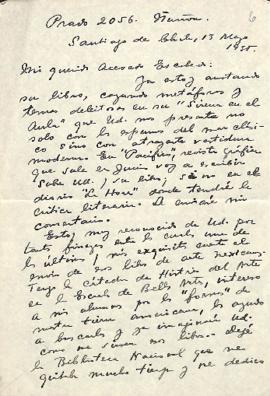 Prado 2056. Ñuñoa.
6
Santiago de Chile, 13 Mayo
1935.
Mi querido Acevedo Escobedo:
Ya estoy anotando
su libro, cazando metáforas y
temas deleitosos en su "Sirena en el
Aula" que Ud. nos presenta no
solo con la espuma del mar clási-
co sino con atrayente vestidura
moderna. En "Pacífico", revista gráfica
que sale en Junio voy a escribir
sobre Ud. y su libro; sino en el
diario "La Hora" donde tendré la
crítica literaria. Le enviaré mi
comentario.
Estoy muy reconocido de Ud. por
tanta fineza entre la cual una de
las últimas, y más exquisita es el
envío de sus libros de arte mexicano.
Tengo la Cátedra de Historia del Arte
en la Escuela de Bellas Artes, intereso
a mis alumnos por las "formas" de
nuestra tierra americana, les ayudo
a buscarlas y ya imaginará Ud.
como me sirven sus libros. Dejé
la Biblioteca Nacional que me
quitaba mucho tiempo y me dedico